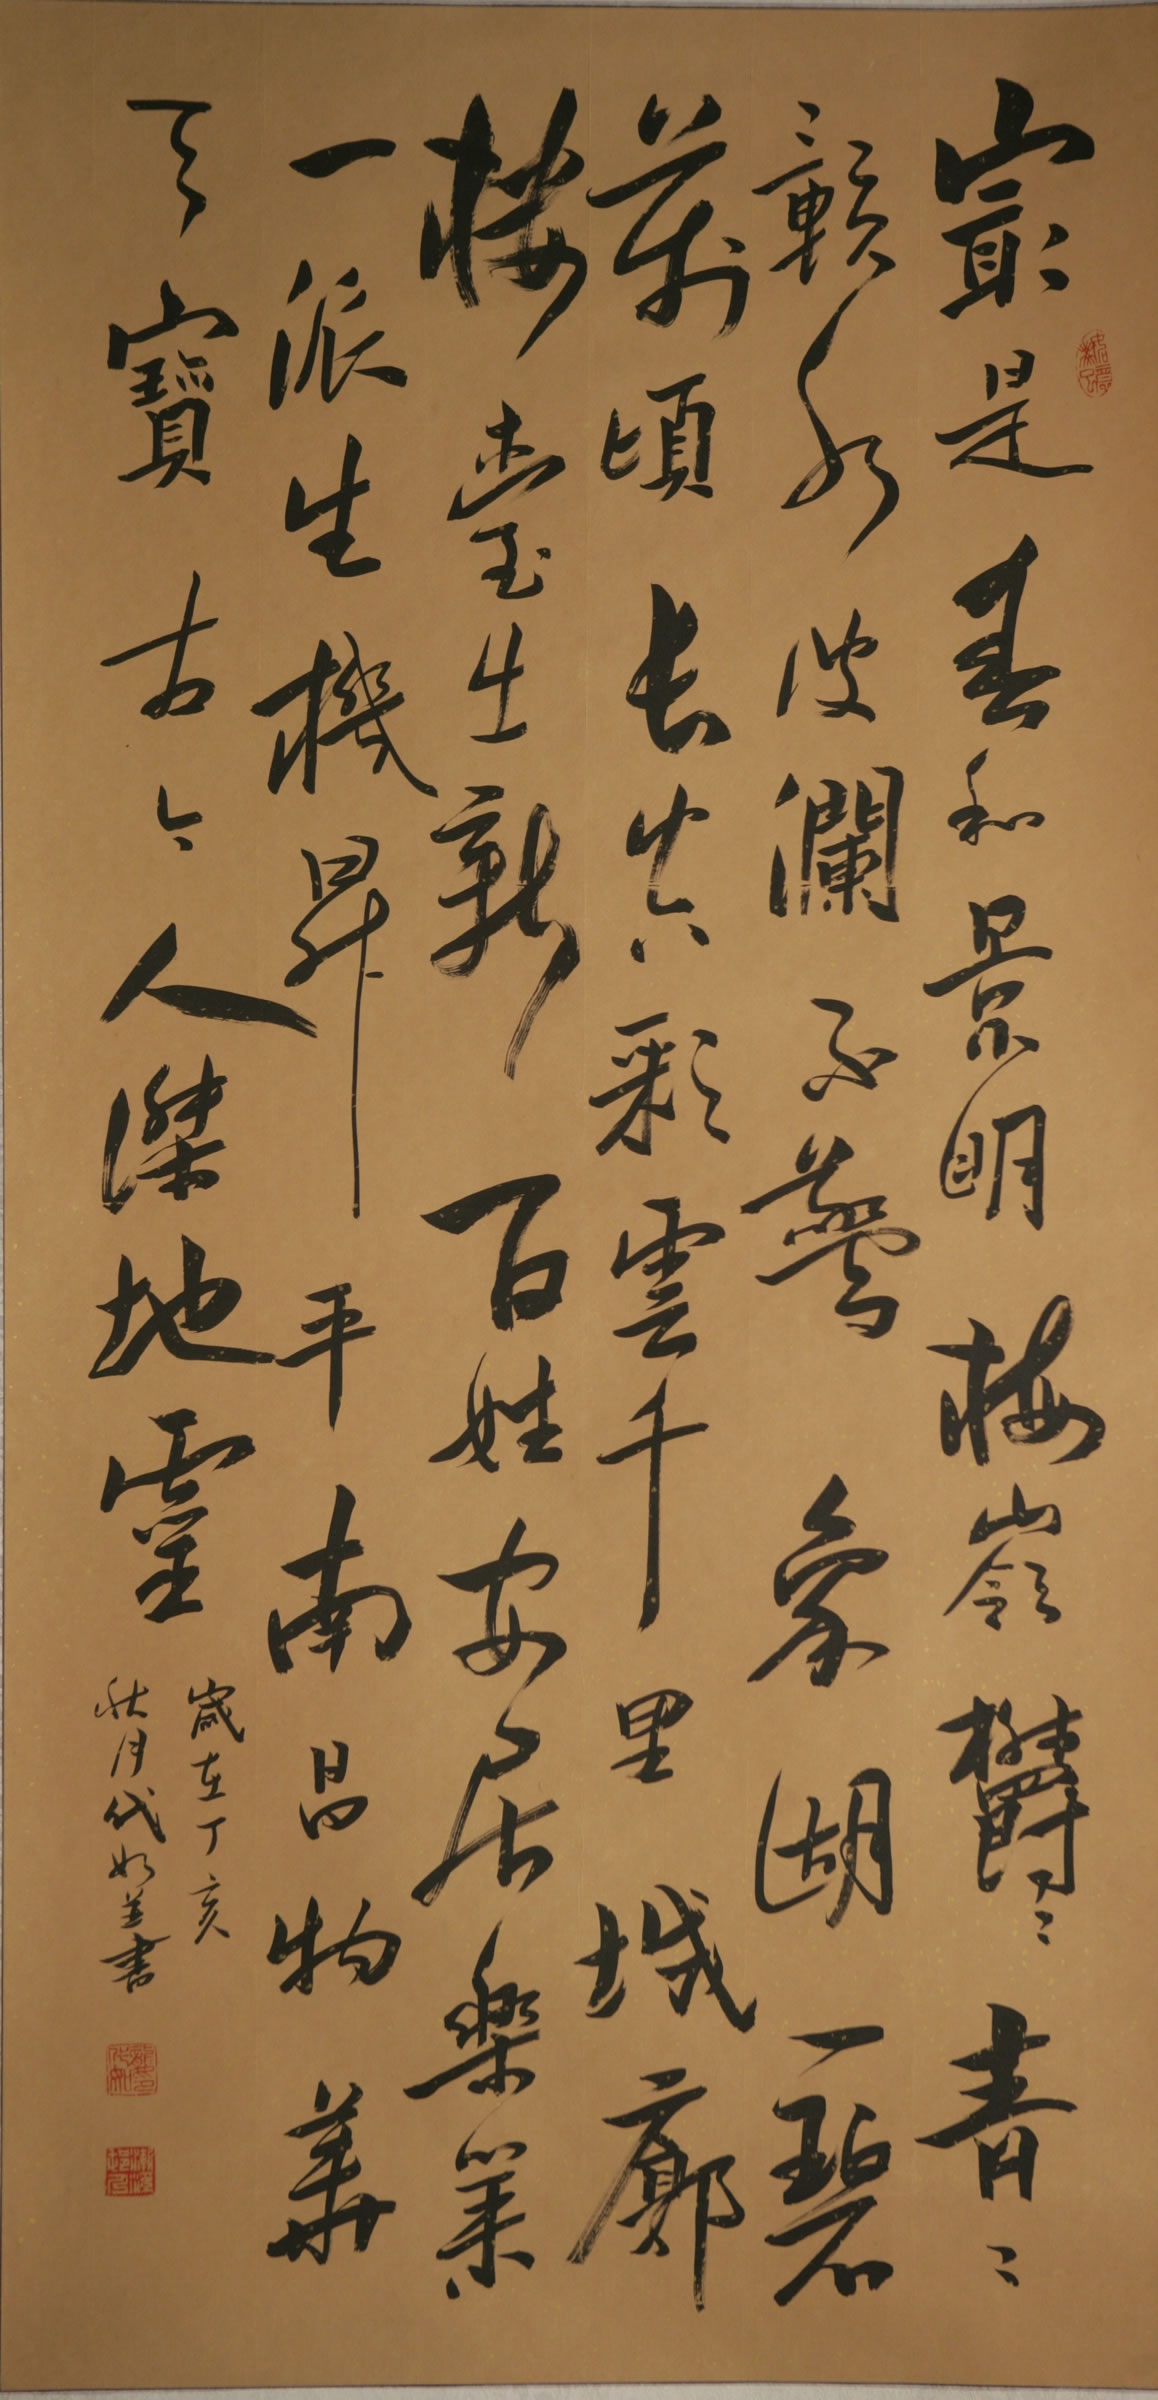 最是春和景明梅嶺欝〻青〻
贛水波瀾不驚象湖一碧
萬頃長空彩雲千里城廓
樓臺生新百姓安居樂業
一派生機昇平南昌物華
天寶古今人傑地靈
歲在丁亥
秋月代如益書